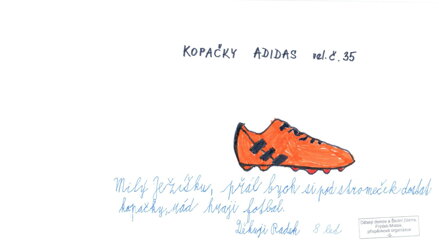 KOPAČKY ADIDAS vel.č.35
Milý Ježíšku, přál bych si pod stromeček dostat
kopačky, rád hraji fotbal.
Děkuji Radek 8 let
Dětský domov a Školní jídelna,